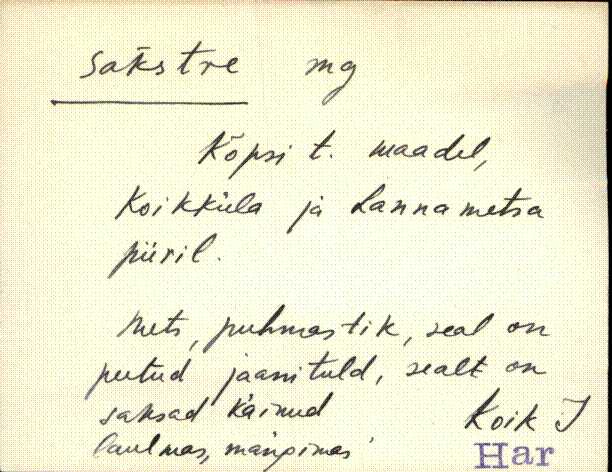 sakstre mg
Kõpsi t. maadel,
Koikküla ja Lannametsa
piiril.
Mets, puhmastik, seal on
peetud jaanituld, sealt on
saksad käinud
laulmas, mängimas Koik I
Har